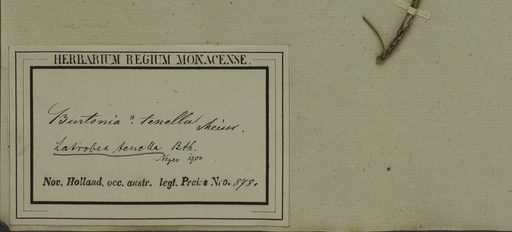 HERBARIUM REGIUM MONACENSE.
Burtonia? tenella Meissn.
Latrobea tenella Bth.
Meyer 1900
Nov. Holland. occ. austr. legt. Preiss No. 878.